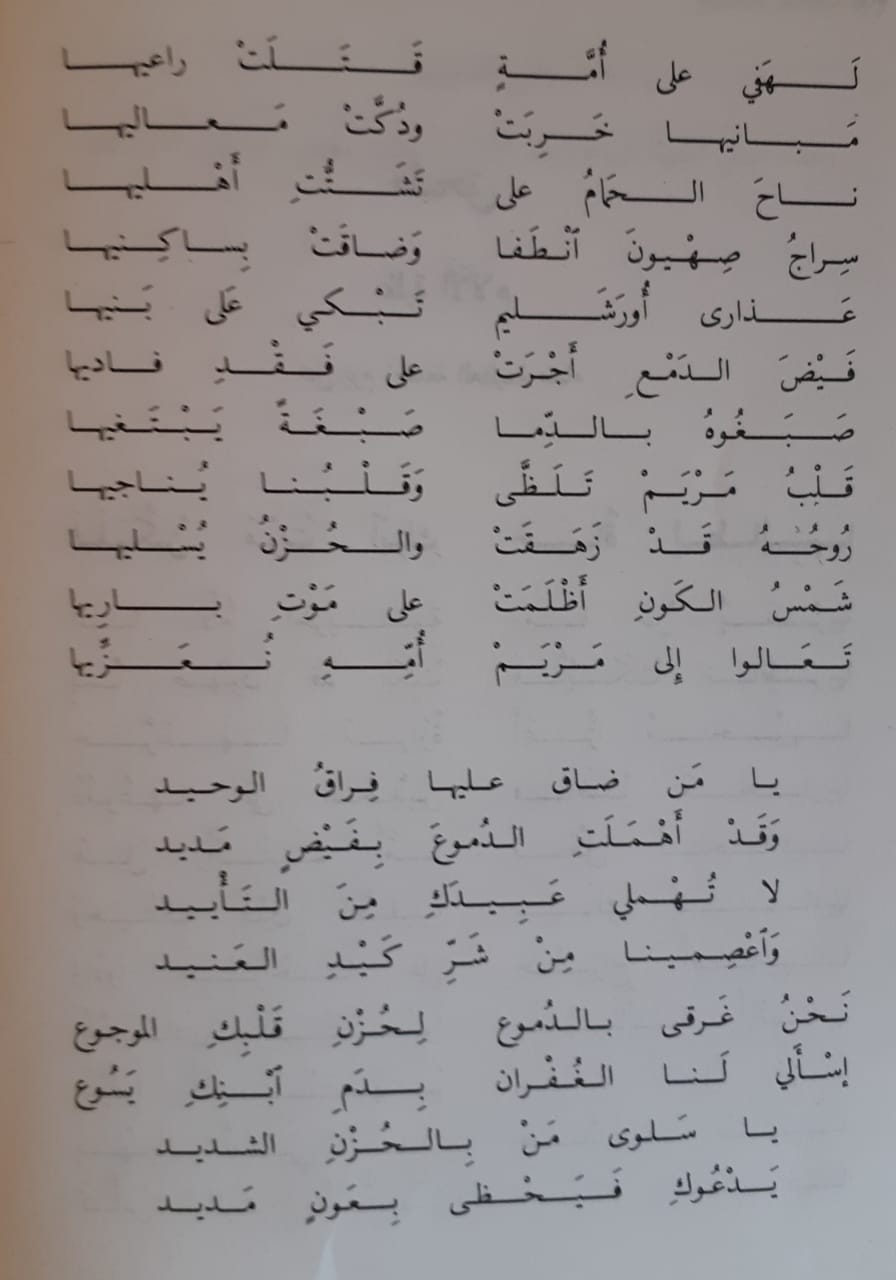 لَـهَفي على أُمَّـةٍ قَـتَـلَتْ راعيها
مَـبـانيها خَـرِبَتْ ودُكَّتْ مَـعـاليها
نـاحَ الـحَمامُ على تَشَـتُّتِ أَهْـليها
سِراجُ صِهْيونَ ٱنْطَفا وَضاقَتْ بِساكِنيها
عَـذارى أُورَشَـليم تَـبْكي عَلى بَنيها
فَيْضَ الدَمْعِ أَجْرَتْ على فَـقْـدِ فـاديها
صَـبَـغُوهُ بـالـدِّما صَـبْـغَـةً يَـبْـتَـغيها
قَلْبُ مَرْيَمْ تَلَظَّى وَقَـلْـبُـنا يُناجيها
رُوحُـهُ قَـدْ زَهَـقَتْ والـحُـزْنُ يُسْليها
شَمْسُ الكَونِ أَظْلَمَتْ على مَوْتِ بـاريها
تَـعَـالوا إلى مَرْيَمْ أُمِّـهِ نُـعَـزِّيها
يـا مَن ضاق عليها فِراقُ الوحيد
وَقَدْ أَهْمَلَتِ الدُموعَ بِفَيْضٍ مَديد
لا تُهْملي عَبِيدَكِ مِنَ التَأْييد
وَٱعْصِمينا مِنْ شَرِّ كَيْدِ العَنيد
نَحْنُ غَرقى بالدُموع لِحُزْنِ قَلْبِكِ الموجوع
إسْأَلي لَنا الغُفْران بِدَمِ ٱبْنِكِ يَسُوع
يـا سَلوى مَنْ بِالحُزْنِ الشديد
يَدْعُوكِ فَيَحْظى بِعَونٍ مَديد